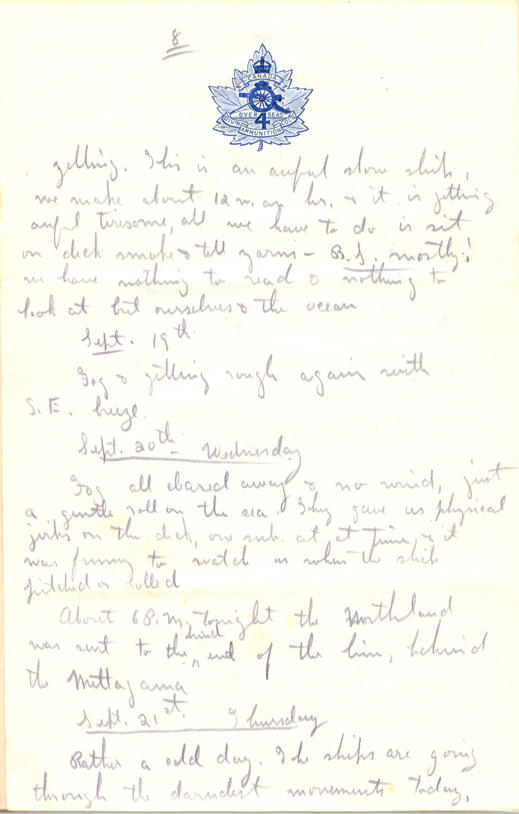 8
CANADA
OVER SEAS
4
DIV'N AMMUNITION COL'N
yelling. This is an awful slow ship,
we make about 12 m. an hr. & it is getting
awful tiresome, all we have to do is sit
on deck smoke & tell yarns - B.S. mostly!
we have nothing to read & nothing to
look at but ourselves & the ocean
Sept. 19th
Fog & getting rough again with
S.E. breeze.
Sept. 20th - Wednesday
Fog all cleared away & no wind, just
a gentle roll on the sea. They gave us physical
jerks on the deck, one sub. at a time, & it
was funny to watch us when the ship
pitched or rolled
About 6 P.M. tonight the Northland
was sent to the hind end of the line, behind
the Mettagama
Sept. 21st. Thursday
Rather a odd day. The ships are going
through the darndest movements today,